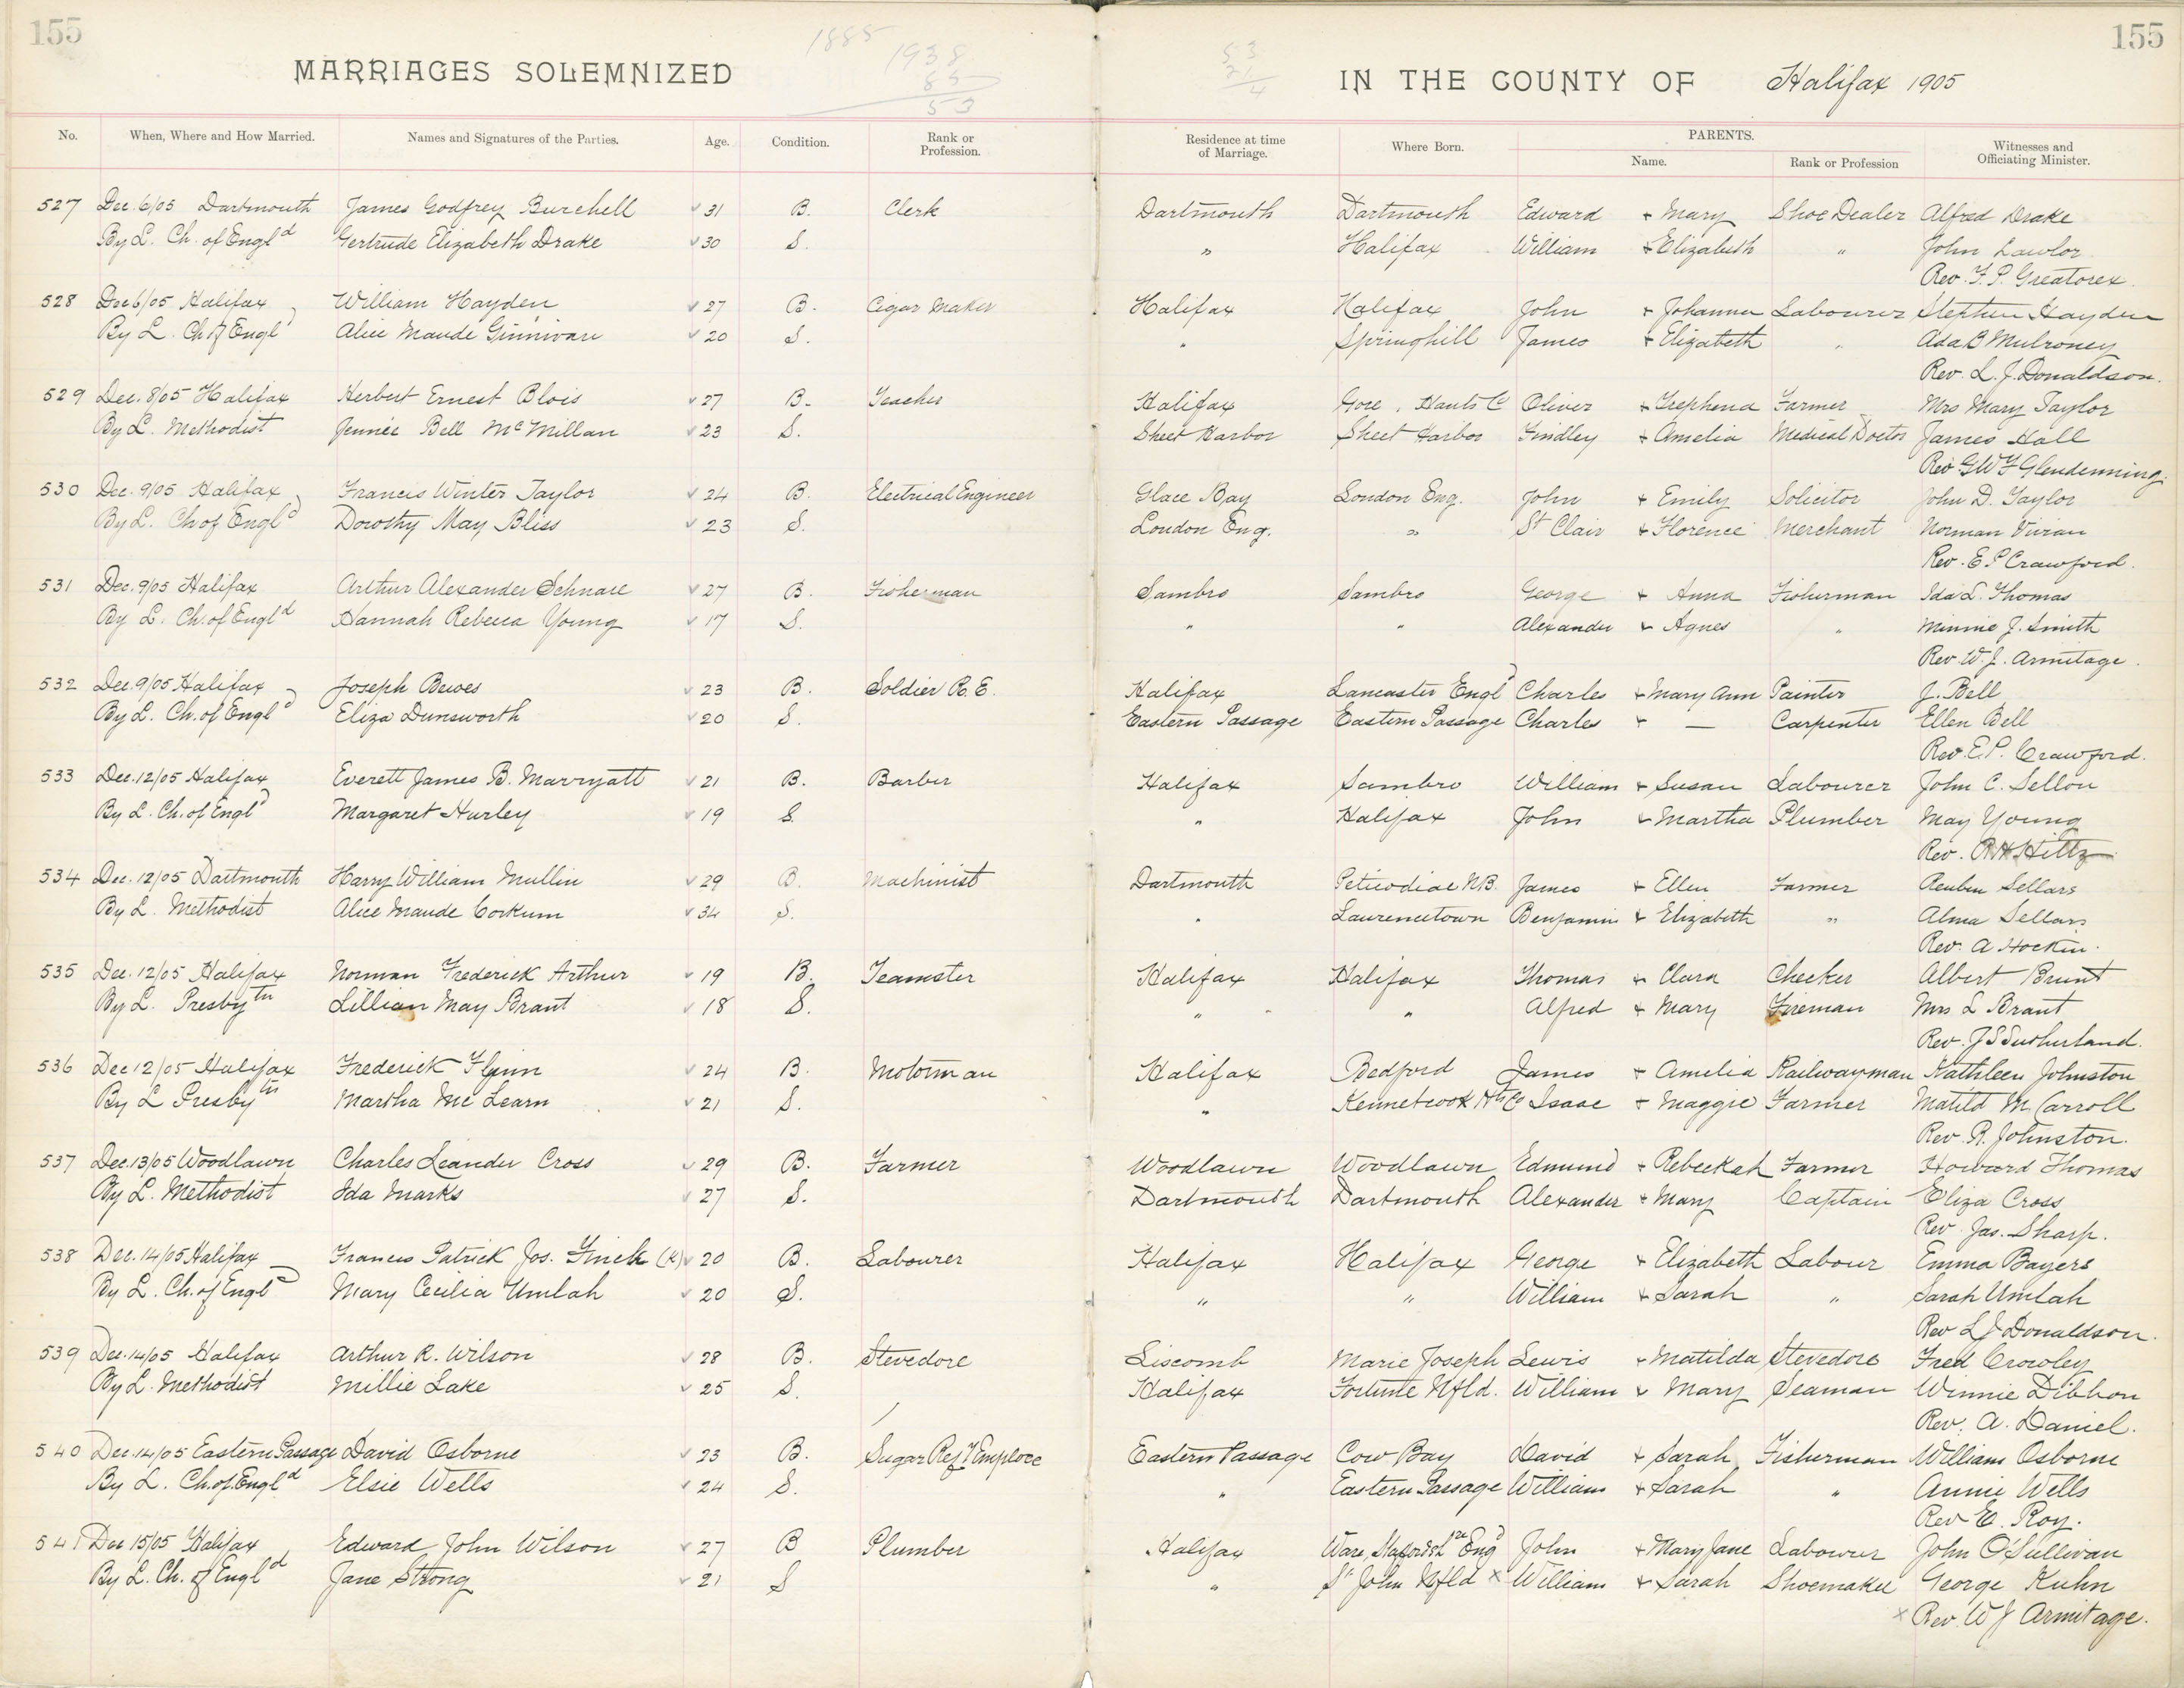 155
155
1885
1938
85
53
53
21
4
MARRIAGES SOLEMNIZED IN THE COUNTY OF Halifax 1905
No. When, Where and How Married. Names and Signatures of the Parties. Age. Condition. Rank or Profession. Residence at time of Marriage. Where Born. PARENTS. Name. Rank or Profession Witnesses and Officiating Minister.
527 Dec. 6/05 Dartmouth James Godfrey Burchell 31 B. Clerk Dartmouth Dartmouth Edward + Mary Shoe Dealer Alfred Drake
By L. Ch. of Engld Gertrude Elizabeth Drake 30 S. " Halifax William + Elizabeth " John Lawlor
Rev. F. P. Greatorex.
528 Dec 6/05 Halifax William Hayden 27 B. Cigar Maker Halifax Halifax John + Johanna Labourer Stephen Hayden
By L. Ch of Engld Alice Maude Ginnivan 20 S. " Springhill James + Elizabeth " Ada B Mulroney
Rev. L. J. Donaldson.
529 Dec. 8/05 Halifax Herbert Ernest Blois 27 B. Teacher Halifax Gore, Hants C Oliver + Trephena Farmer Mrs Mary Taylor
By L. Methodist Jennie Bell McMillan 23 S. Sheet Harbor Sheet Harbor Findley + Amelia Medical Doctor James Hall
Rev G W F Glendenning.
530 Dec. 9/05 Halifax Francis Winter Taylor 24 B. Electrical Engineer Glace Bay London Eng. John + Emily Solicitor John D. Taylor
By L. Ch of Engld Dorothy May Bliss 23 S. London Eng. " St Clair + Florence Merchant Norman Vivian
Rev. E. P Crawford.
531 Dec. 9/05 Halifax Arthur Alexander Schnare 27 B. Fisherman Sambro Sambro George + Anna Fisherman Ida L. Thomas
By L. Ch. of Engld Hannah Rebecca Young 17 S. " " Alexander + Agnes " Minnie J. Smith
Rev. W. J. Armitage.
532 Dec. 9/05 Halifax Joseph Bewes 23 B. Soldier R. E. Halifax Lancaster Engd Charles + Mary Ann Painter J. Bell
By L. Ch. of Engld Eliza Dunsworth 20 S. Eastern Passage Eastern Passage Charles + — Carpenter Ellen Bell
Rev. E. P. Crawford.
533 Dec. 12/05 Halifax Everett James B. Marryatt 21 B. Barber Halifax Sambro William + Susan Labourer John C. Sellon
By L. Ch. of Engld Margaret Hurley 19 S. " Halifax John + Martha Plumber May Young
Rev. Hiltz
534 Dec. 12/05 Dartmouth Harry William Mullin 29 B. Machinist Dartmouth Peticodiac N.B. James + Ellen Farmer Reuben Sellars
By L. Methodist Alice Maude Corkum 34 S. " Laurencetown Benjamin + Elizabeth " Alma Sellars
Rev. A Hockin.
535 Dec. 12/05 Halifax Norman Frederick Arthur 19 B. Teamster Halifax Halifax Thomas + Clara Checker Albert Brunt
By L. Presbytn Lillian May Brant 18 S. " " Alfred + Mary Fireman Mrs L Brant
Rev. J S Sutherland.
536 Dec 12/05 Halifax Frederick Flynn 24 B. Motorman Halifax Bedford James + Amelia Railwayman Kathleen Johnston
By L Presbytn Martha McLearn 21 S. " Kennetcook Hts Co Isaac + Maggie Farmer Matild M. Carroll
Rev. R. Johnston.
537 Dec. 13/05 Woodlawn Charles Leander Cross 29 B. Farmer Woodlawn Woodlawn Edmund + Rebeckah Farmer Howard Thomas
By L. Methodist Ida Marks 27 S. Dartmouth Dartmouth Alexander + Mary Captain Eliza Cross
Rev. Jas. Sharp.
538 Dec. 14/05 Halifax Francis Patrick Jos. Finck (K) 20 B. Labourer Halifax Halifax George + Elizabeth Labour Emma Bayers
By L. Ch. of Engld Mary Cecilia Umlah 20 S. " " William + Sarah " Sarah Umlah
Rev L J Donaldson.
539 Dec. 14/05 Halifax Arthur R. Wilson 28 B. Stevedore Liscomb Marie Joseph Lewis + Matilda Stevedore Fred Crowley
By L. Methodist Millie Lake 25 S. Halifax Fortune Nfld. William + Mary Seaman Winnie Dibbon
Rev. A. Daniel.
540 Dec. 14/05 Eastern Passage David Osborne 23 B. Sugar Refy Employee Eastern Passage Cow Bay David + Sarah Fisherman William Osborne
By L. Ch. of Engld Elsie Wells 24 S. " Eastern Passage William + Sarah " Annie Wells
Rev E. Roy.
541 Dec 15/05 Halifax Edward John Wilson 27 B Plumber Halifax Ware, Staffordshre Engd John + Mary Jane Labourer John O'Sullivan
By L. Ch. of Engld Jane Strong 21 S " St John Nfld x William + Sarah Shoemaker George Kuhn
x Rev. W J Armitage.